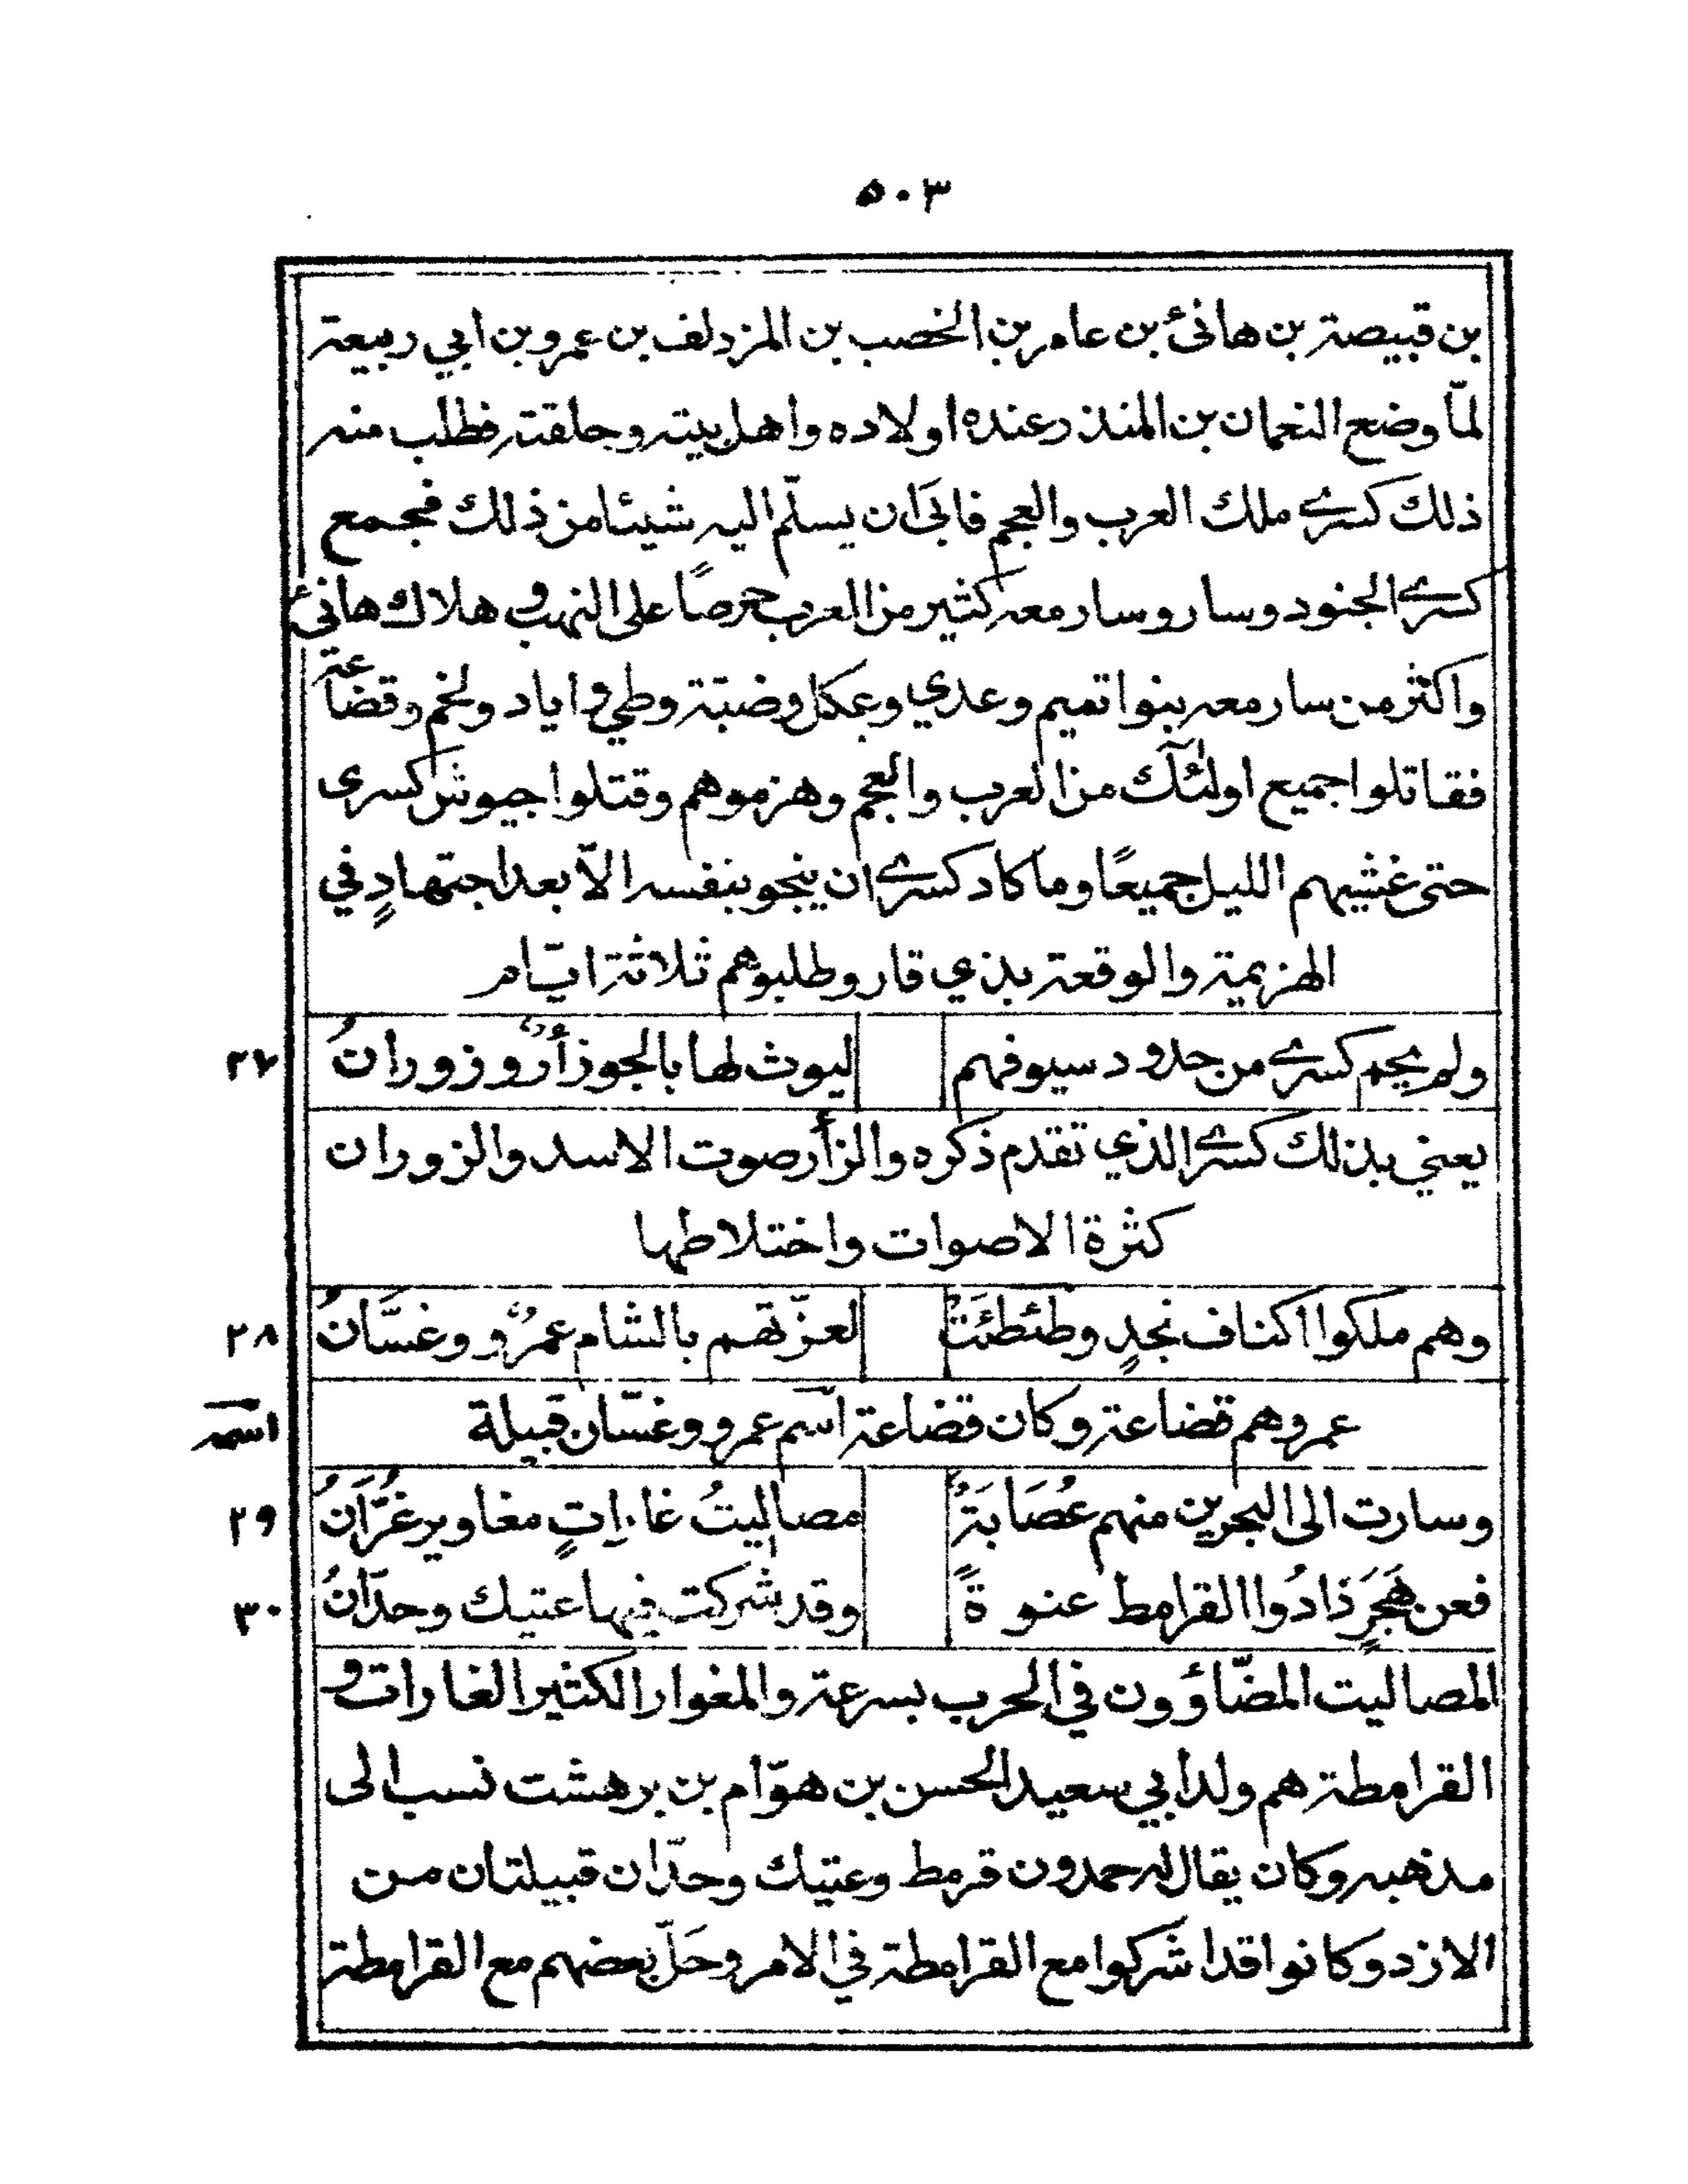 ٥٠٣
بن قبيصة بن هانئ بن عامر بن الخصب بن المزدلف بن عمرو بن ابي ربيعة
لمّا وضع النعمان بن المنذر عنده اولاده واهل بيته وحلقته فطلب منه
ذلك كسرى ملك العرب والعجم فابىَ ان يسلّم اليه شيئا من ذلك فجمع
كسرى الجنود وسار وسار معه كثير من العرب حرصًا على النهب و هلاك هانئ
واكثر من سار معه بنوا تميم وعدي وعكل وضبّة وطي و اياد ولخم وقضاعة
فقاتلوا جميع اولئك من العرب والعجم وهزموهم وقتلوا جيوش كسرى
حتى غشيهم الليل جميعًا وما كاد كسرى ان ينجو بنفسه الاّ بعد اجتهادٍ في
الهزيمة والوقعة بذي قار وطلبوهم ثلاثة ايّام
ولم يحم كسرى من حدود سيوفهم ليوث لها بالجوزأرٌ وزورانُ ٢٧
يعني بذلك كسرى الذي تقدم ذكره والزأر صوت الاسد والزوران
كثرة الاصوات واختلاطها
وهم ملكوا اكناف نجدٍ وطئطئَتْ لعزّتهم بالشام عمرٌو وغسَّانُ ٢٨
عمرو هم قضاعة وكان قضاعة اسم عمرو وغسّان قبيلة اسمه
وسارت الى البحرين منهم عُصَابَةٌ مصاليتُ غاراتٍ مغاوير غُرَّانُ ٢٩
فعن هَجَرٍ ذادُوا القرامط عنوةً وقد شركت فيها عتيك وحدّانُ ٣٠
المصاليت المضّاؤون في الحرب بسرعة والمغوار الكثير الغارات و
القرامطة هم ولد ابي سعيد الحسن بن هوّام بن برهشت نسب الى
مذهبه وكان يقال له حمدون قرمط وعتيك وحدّان قبيلتان من
الازد وكانوا قد اشركوا مع القرامطة في الامر وحَلّ بعضهم مع القرامطة